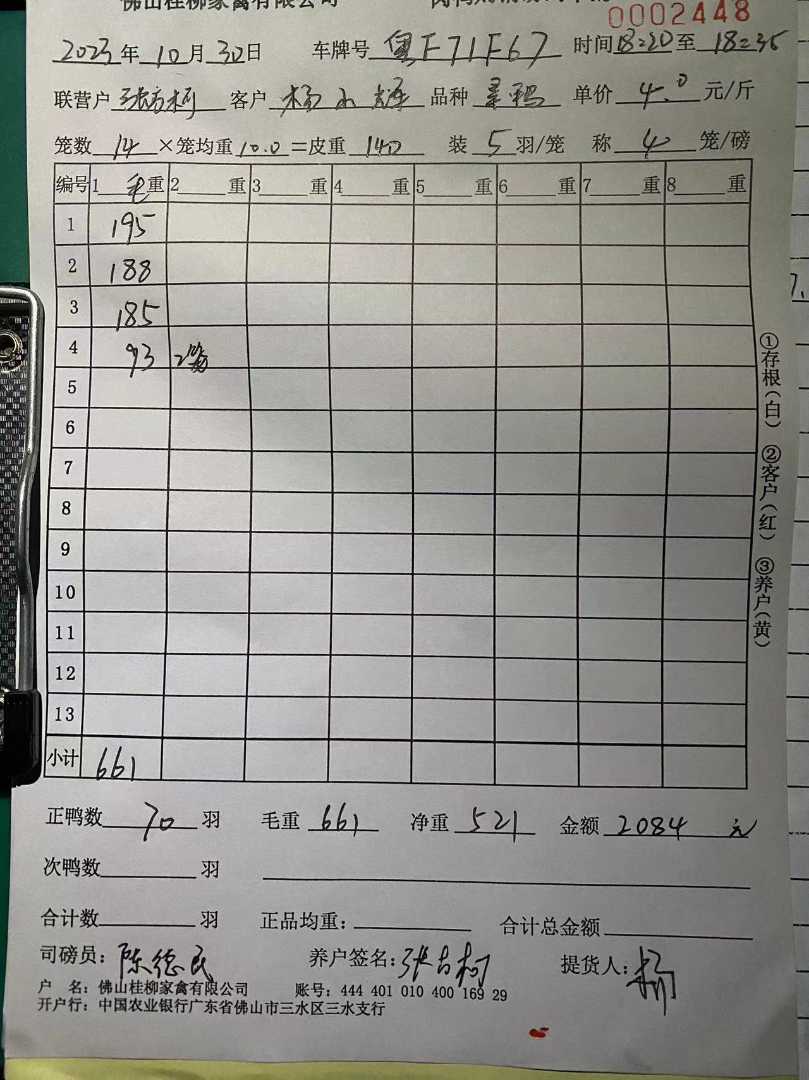 佛山桂柳家禽有限公司
0002448
2023年10月30日 车牌号 粤F71F67 时间18:20至18:35
联营户 客户 杨 辉 品种 单价 4.0 元/斤
笼数 14 ×笼均重 10.0 =皮重 140 装 5 羽/笼 称 4 笼/磅
编号 1 毛重 2 重 3 重 4 重 5 重 6 重 7 重 8 重
1 195
2 188
3 185
4 93 2笼
5
6
7
8
9
10
11
12
13
小计 661
正鸭数 70 羽 毛重 661 净重 521 金额 2084 元
次鸭数 羽
合计数 羽 正品均重: 合计总金额
司磅员: 陈德民 养户签名: 张 柯 提货人: 杨
户 名: 佛山桂柳家禽有限公司 账号: 444 401 010 400 169 29
开户行: 中国农业银行广东省佛山市三水区三水支行
①存根(白) ②客户(红) ③养户(黄)